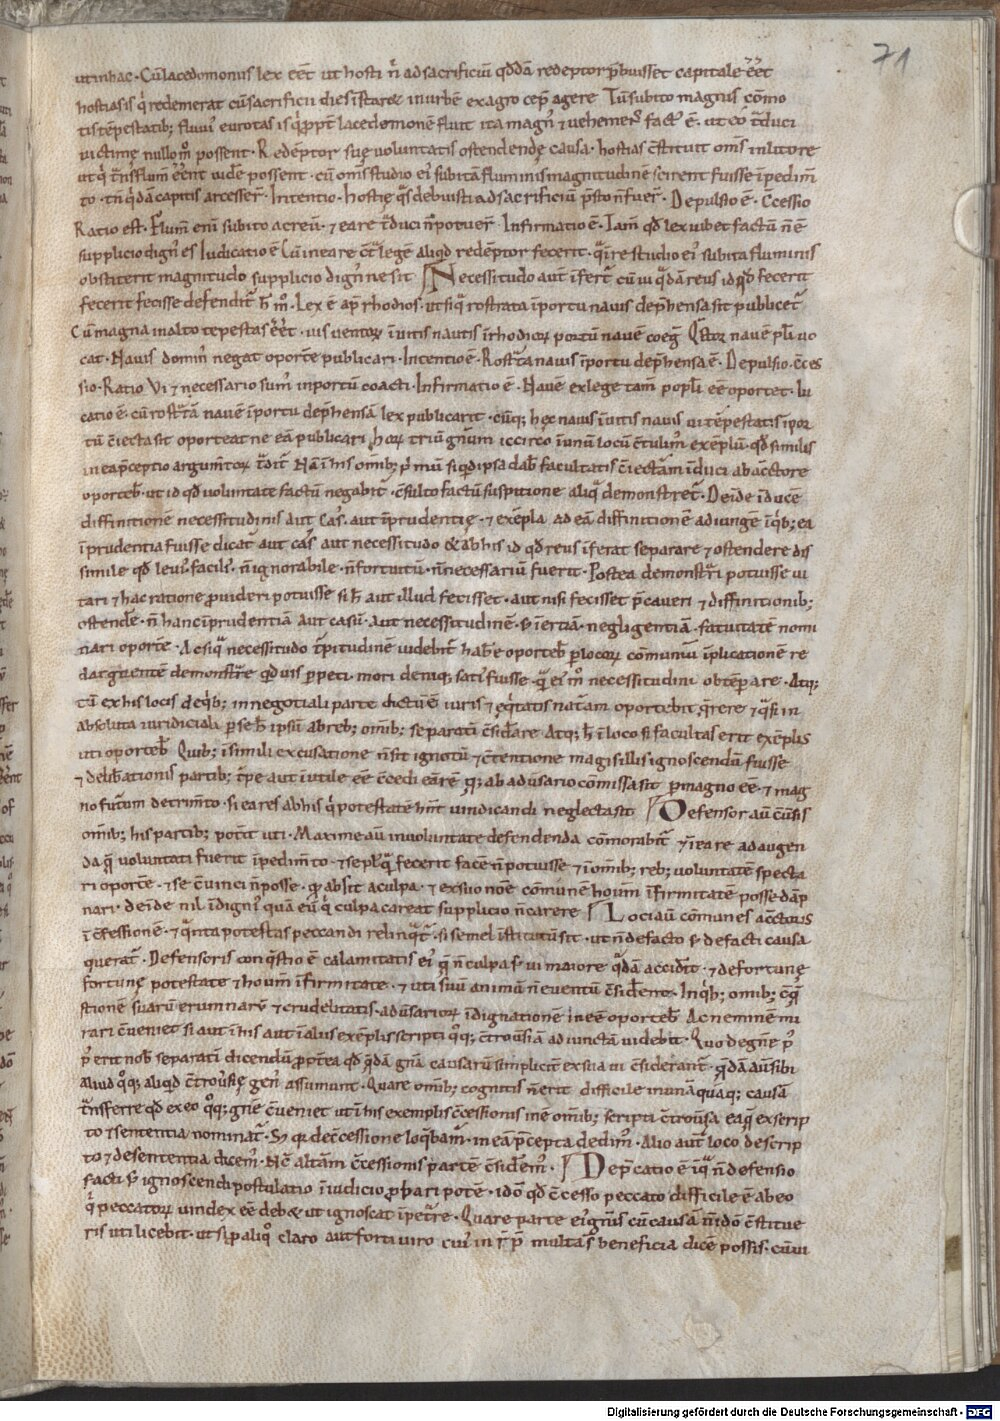 71
ut in hac. Cū lacedomonus lex eēt ut hosti n̄ ad sacrificiū qd̄dā redeptor p̄buisset capitale eēt
hostias is q̇ redemerat cū sacrificii dies īstaret in urbē ex agro cep̄ agere Tū subito magnis cōmo
tis tēpestatib; fluui' eurotas is q̇ p̱pt̄ lacedomonē fluit ita magn' ⁊ uehemēs fact' ē. ut eo t̄duci
uictimę nullo m̊ possent. Redēptor suę uoluntatis ostendendę causa. hostias c̄stituit om̄s in litore
ut q̇ t̄ns flum̄ eēnt uidē possent. cū om̄s studio ei' subitā fluminis magnitudinē scirent fuisse īpedim̄
to. tn̄ q̇dā capitis arcesser̄. Intentio. hostię q̄s debuisti ad sacrificiū p̄sto n̄ fuer̄. Depulsio ē. C̄cessio
Ratio est. Flum̄ eni subito acreuit. ⁊ ea re t̄duci n̄ potuer̄. Infirmatio ē. Tam̄ qd̄ lex iubet factū n̄ ē
supplicio dign' es Iudicatio ē Cū in ea re c̄t̄ legē aliqd redēptor fecerit. q̄ in re studio ei' subita fluminis
obstiterit magnitudo supplicio dign' ne sit Necessitudo aut̄ īfert̄ cū ui q̇dā reus id qd̄ fecerit
fecerit fecisse defendit̄ h̄ m̊. Lex ē ap̄ rhodios. ut siq̄ rostrata ī portu nauis dep̄hensa sit publicet̄
Cū magna in alto tēpestas eēt. uis uentoꝝ īuitis nautis ī rhodioꝝ portū nauē coeḡ Q̄stor nauē pl̄i uo
cat. Nauis domin' negat oportē publicari. Intentio ē. Rost̄ta nauis ī portu dep̄hensa ē. Depulsio. C̄ces
sio. Ratio Vi ⁊ necessario sum' in portū coacti. Infirmatio ē. Nauē ex lege tam̄ popl̄i eē oportet. Iu
catio ē. cū rost̄tā nauē ī portu dep̄hensā lex publicarit. cūq; hęc nauis īuitis nauis ui tēpestatis ī por
tū c̄iecta sit oporteat ne eā publicari horꝝ triū gn̄um iccirco ī unū locū c̄tulim' exēpla. qd̄ similis
in ea p̄ceptio argum̄toꝝ t̄dit̄ Nā ī his omib; p̄mū si q̇d ipsa dab̄ facultatis c̄iectā induci ab actore
oporteb̄. ut id qd̄ uoluntate factū negabit̄. c̄sulto factū suspitione aliq̄ demonstret̄. Deīde īducē
diffinitionē necessitudinis aut cas'. aut īprudentię. ⁊ exēpla ad eā diffinitionē adiungē ī q̇b; ea
īprudentia fuisse dicat̄ aut cas' aut necessitudo & ab his id qd̄ reus īferat separare ⁊ ostendere dis
simile qd̄ leui' facili'. n̄ ignorabile. n̄ fortuitū. n̄ necessariū fuerit. Postea demonst̄ri potuisse ui
tari ⁊ hac ratione ꝓuideri potuisse si h̄ aut illud fecisset. aut nisi fecisset p̄caueri ⁊ diffinitionib;
ostendē. n̄ hanc īprudentiā aut casū. aut necessitudinē. s; īertiā. negligentiā. fatuitatē nomi
nari oportē. Ac siq̄ necessitudo t̄pitudinē uidebit̄ habē oporteb̄ p̱ locoꝝ comuniū īplicationē re
darguentē demonst̄re qd̄uis p̱peti. mori deniq; sati' fuisse. q̄ ei' m̊ necessitudini obtēp̱are. Atq;
tū ex his locis de q̇b; in negotiali parte dictū ē iuris ⁊ eq̇tatis nat̄am oportebit q̄rere ⁊ q̄si in
absoluta iuridiciali p̱ se h̄ ipsū ab reb; omib; separati c̄sidare Atq; h̄ ī loco si facultas erit exēplis
uti oporteb̄ Quib; ī simili excusatione n̄ sit ignotū ⁊ c̄tentione magis illis ignoscendū fuisse
⁊ delib̄ationis partib; t̄pe aut īutile eē c̄cedi ea rē q; ab adūsario cōmissa sit p̱magno eē. ⁊ mag
no futurum detrim̄to. si ea res ab his q̇ potestatē hn̄t uindicandi neglecta sit Defensor aū c̄uersis
omib; his partib; poterit uti. Maxime aū in uoluntate defendenda cōmorabit̄ ⁊ in ea re ad augen
da q̄ uoluntati fuerit īpedim̄to. ⁊ se pl' q̄ fecerit facē n̄ potuisse ⁊ ī omib; reb; uoluntatē specta
ri oportē. ⁊ se c̄uinci n̄ posse. q̇ absit a culpa. ⁊ ex suo noīe cōmunē hoium īfirmitatē posse dāp
nari. deinde nil īdigni' quā eū q̇ culpa careat supplicio n̄ carere Loci aū cōmunes accatoris
ī c̄fessionē. ⁊ q̄nta potestas peccandi relinq̄t̄. si semel īstitutū sit. ut n̄ de facto s; de facti causa
querat̄. Defensoris conq̄stio ē calamitatis ei' q̄ n̄ culpa s; ui maiore q̇dā accidit̄. ⁊ de fortunę
fortunę potestate ⁊ hoium īfirmitate. ⁊ uti suū animū n̄ euentū c̄sident̄. In q̇b; omib; c̄q̄
stionē suarū erumnarū ⁊ crudelitatis adūsarioꝝ īdignationē in eē oporteb̄. Ac neminē mi
rari c̄ueniet si aut ī his aut ī aliis exēplis scripti q̊q; c̄trouersiā adiunctā uidebit. Quo de gn̄e p̄
p̄ erit nob̄ separati dicendū ꝓpt̄ea qd̄ q̄dā gn̄a causarū simplicit̄ ex sua ui c̄siderant̄. q̄dā aū sibi
aliud q̊q; aliqd c̄trouersię gen' assumunt. Quare omib; cognitis n̄ erit difficile in unā quāq; causā
t̄nsferre qd̄ ex eo q̊q; gn̄e c̄ueniet ut ī his exemplis c̄cessionis in ē omib; scripti c̄trouersa ea q̄ ex scrip
to ⁊ sententia nominat̄. S; q; de c̄cessione loq̄bam̄. in eā p̄cepta dedim'. Alio aut̄ loco de scrip
to ⁊ de sententia dicem'. Nc̄ altam̄ c̄cessionis partē c̄sidem'. Dep̄catio ē ī q̄ n̄ defensio
facti s; ignoscendi postulatio ī iudicio ꝓbari potē. ido' qd̄ c̄cesso peccato difficile ē ab eo
q̇ peccatorū uindex eē deb& ut ignoscat īpet̄re. Quare parte ei' gn̄is cū causā n̄ ido' c̄stitue
ris uti licebit. ut si p̱ aliq̊ claro aut forti uiro cui' in r̄p̄ multa s̄ beneficia dicē possis. cū ui
Digitalisierung gefördert durch die Deutsche Forschungsgemeinschaft - DFG